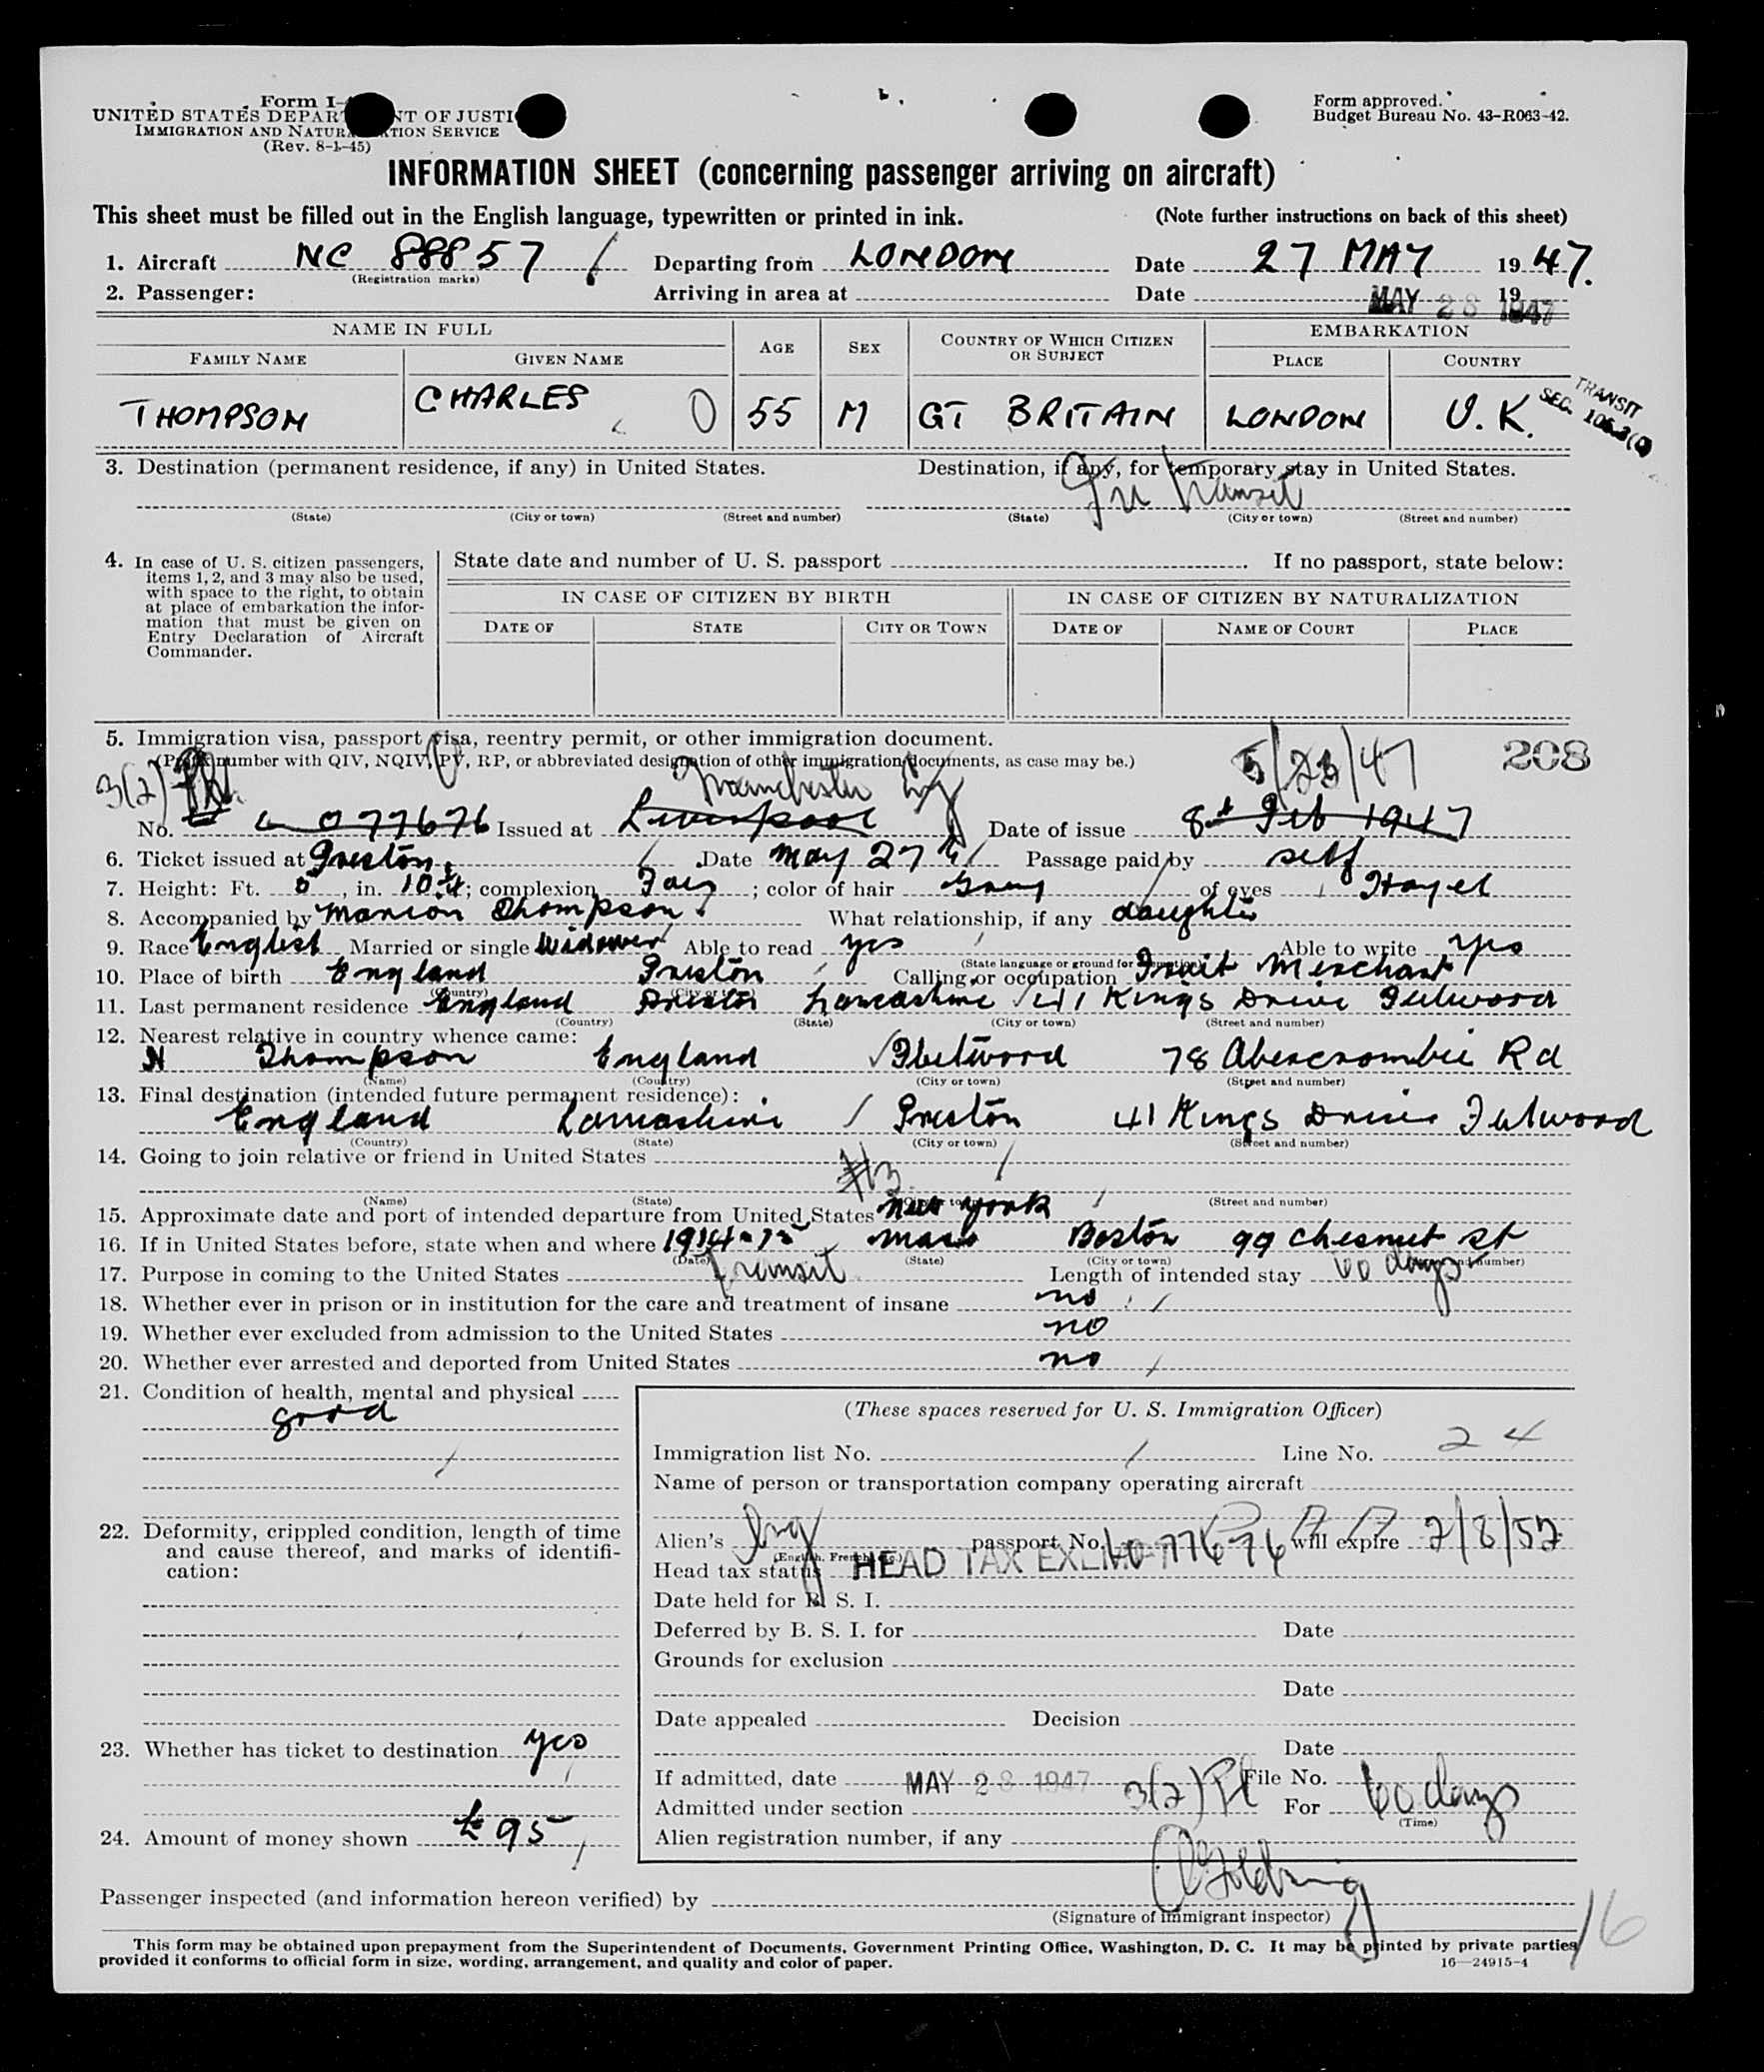 Form I-
UNITED STATES DEPART NT OF JUSTI
IMMIGRATION AND NATUR TION SERVICE
(Rev. 8-1-45)
Form approved.
Budget Bureau No. 43-R063-42.
INFORMATION SHEET (concerning passenger arriving on aircraft)
This sheet must be filled out in the English language, typewritten or printed in ink. (Note further instructions on back of this sheet)
1. Aircraft NC 88857 Departing from LONDON Date 27 MAY 1947.
(Registration marks)
2. Passenger: Arriving in area at Date MAY 28 1947 19
NAME IN FULL AGE SEX COUNTRY OF WHICH CITIZEN OR SUBJECT EMBARKATION
FAMILY NAME GIVEN NAME PLACE COUNTRY
THOMPSON CHARLES 0 55 M GT BRITAIN LONDON U.K.
TRANSIT
SEC.
3. Destination (permanent residence, if any) in United States. Destination, if any, for temporary stay in United States.
In transit
(State) (City or town) (Street and number) (State) (City or town) (Street and number)
4. In case of U. S. citizen passengers, items 1, 2, and 3 may also be used, with space to the right, to obtain at place of embarkation the information that must be given on Entry Declaration of Aircraft Commander.
State date and number of U. S. passport . If no passport, state below:
IN CASE OF CITIZEN BY BIRTH IN CASE OF CITIZEN BY NATURALIZATION
DATE OF STATE CITY OR TOWN DATE OF NAME OF COURT PLACE
5. Immigration visa, passport visa, reentry permit, or other immigration document.
(Prefix number with QIV, NQIV, PV, RP, or abbreviated designation of other immigration documents, as case may be.) 208
3(2) Manchester Eng 5/23/47
No. 077676 Issued at Liverpool Date of issue 8th Feb 1947
6. Ticket issued at Preston Date May 27th Passage paid by self
7. Height: Ft. 5, in. 10¾; complexion Fair; color of hair Grey of eyes Hazel
8. Accompanied by Marion Thompson. What relationship, if any daughter
9. Race English Married or single Widower Able to read yes Able to write Yes
(State language or ground for exemption)
10. Place of birth England Preston Calling or occupation Fruit Merchant
(Country) (City or town)
11. Last permanent residence England Preston Lancashire 41 Kings Drive Fulwood
(Country) (State) (City or town) (Street and number)
12. Nearest relative in country whence came:
N Thompson England Fleetwood 78 Abercrombie Rd
(Name) (Country) (City or town) (Street and number)
13. Final destination (intended future permanent residence):
England Lancashire Preston 41 Kings Drive Fulwood
(Country) (State) (City or town) (Street and number)
14. Going to join relative or friend in United States
#3
(Name) (State) (City or town) (Street and number)
15. Approximate date and port of intended departure from United States New York
16. If in United States before, state when and where 1914-15 Mass Boston 99 Chesnut St
(Date) (State) (City or town) (Street and number)
17. Purpose in coming to the United States Transit Length of intended stay 60 days
18. Whether ever in prison or in institution for the care and treatment of insane no
19. Whether ever excluded from admission to the United States no
20. Whether ever arrested and deported from United States no
21. Condition of health, mental and physical
good
22. Deformity, crippled condition, length of time and cause thereof, and marks of identification:
23. Whether has ticket to destination yes
24. Amount of money shown £95
(These spaces reserved for U. S. Immigration Officer)
Immigration list No. Line No. 24
Name of person or transportation company operating aircraft
Alien's Eng passport No. L077676 will expire 2/8/52
(English, French, etc.)
Head tax status HEAD TAX EXEMPT
Date held for B. S. I.
Deferred by B. S. I. for Date
Grounds for exclusion
Date
Date appealed Decision
Date
If admitted, date MAY 28 1947 File No.
Admitted under section 3(2) For 60 days
(Time)
Alien registration number, if any
Passenger inspected (and information hereon verified) by
(Signature of immigrant inspector)
16
This form may be obtained upon prepayment from the Superintendent of Documents, Government Printing Office, Washington, D. C. It may be printed by private parties
provided it conforms to official form in size, wording, arrangement, and quality and color of paper. 16—24915-4